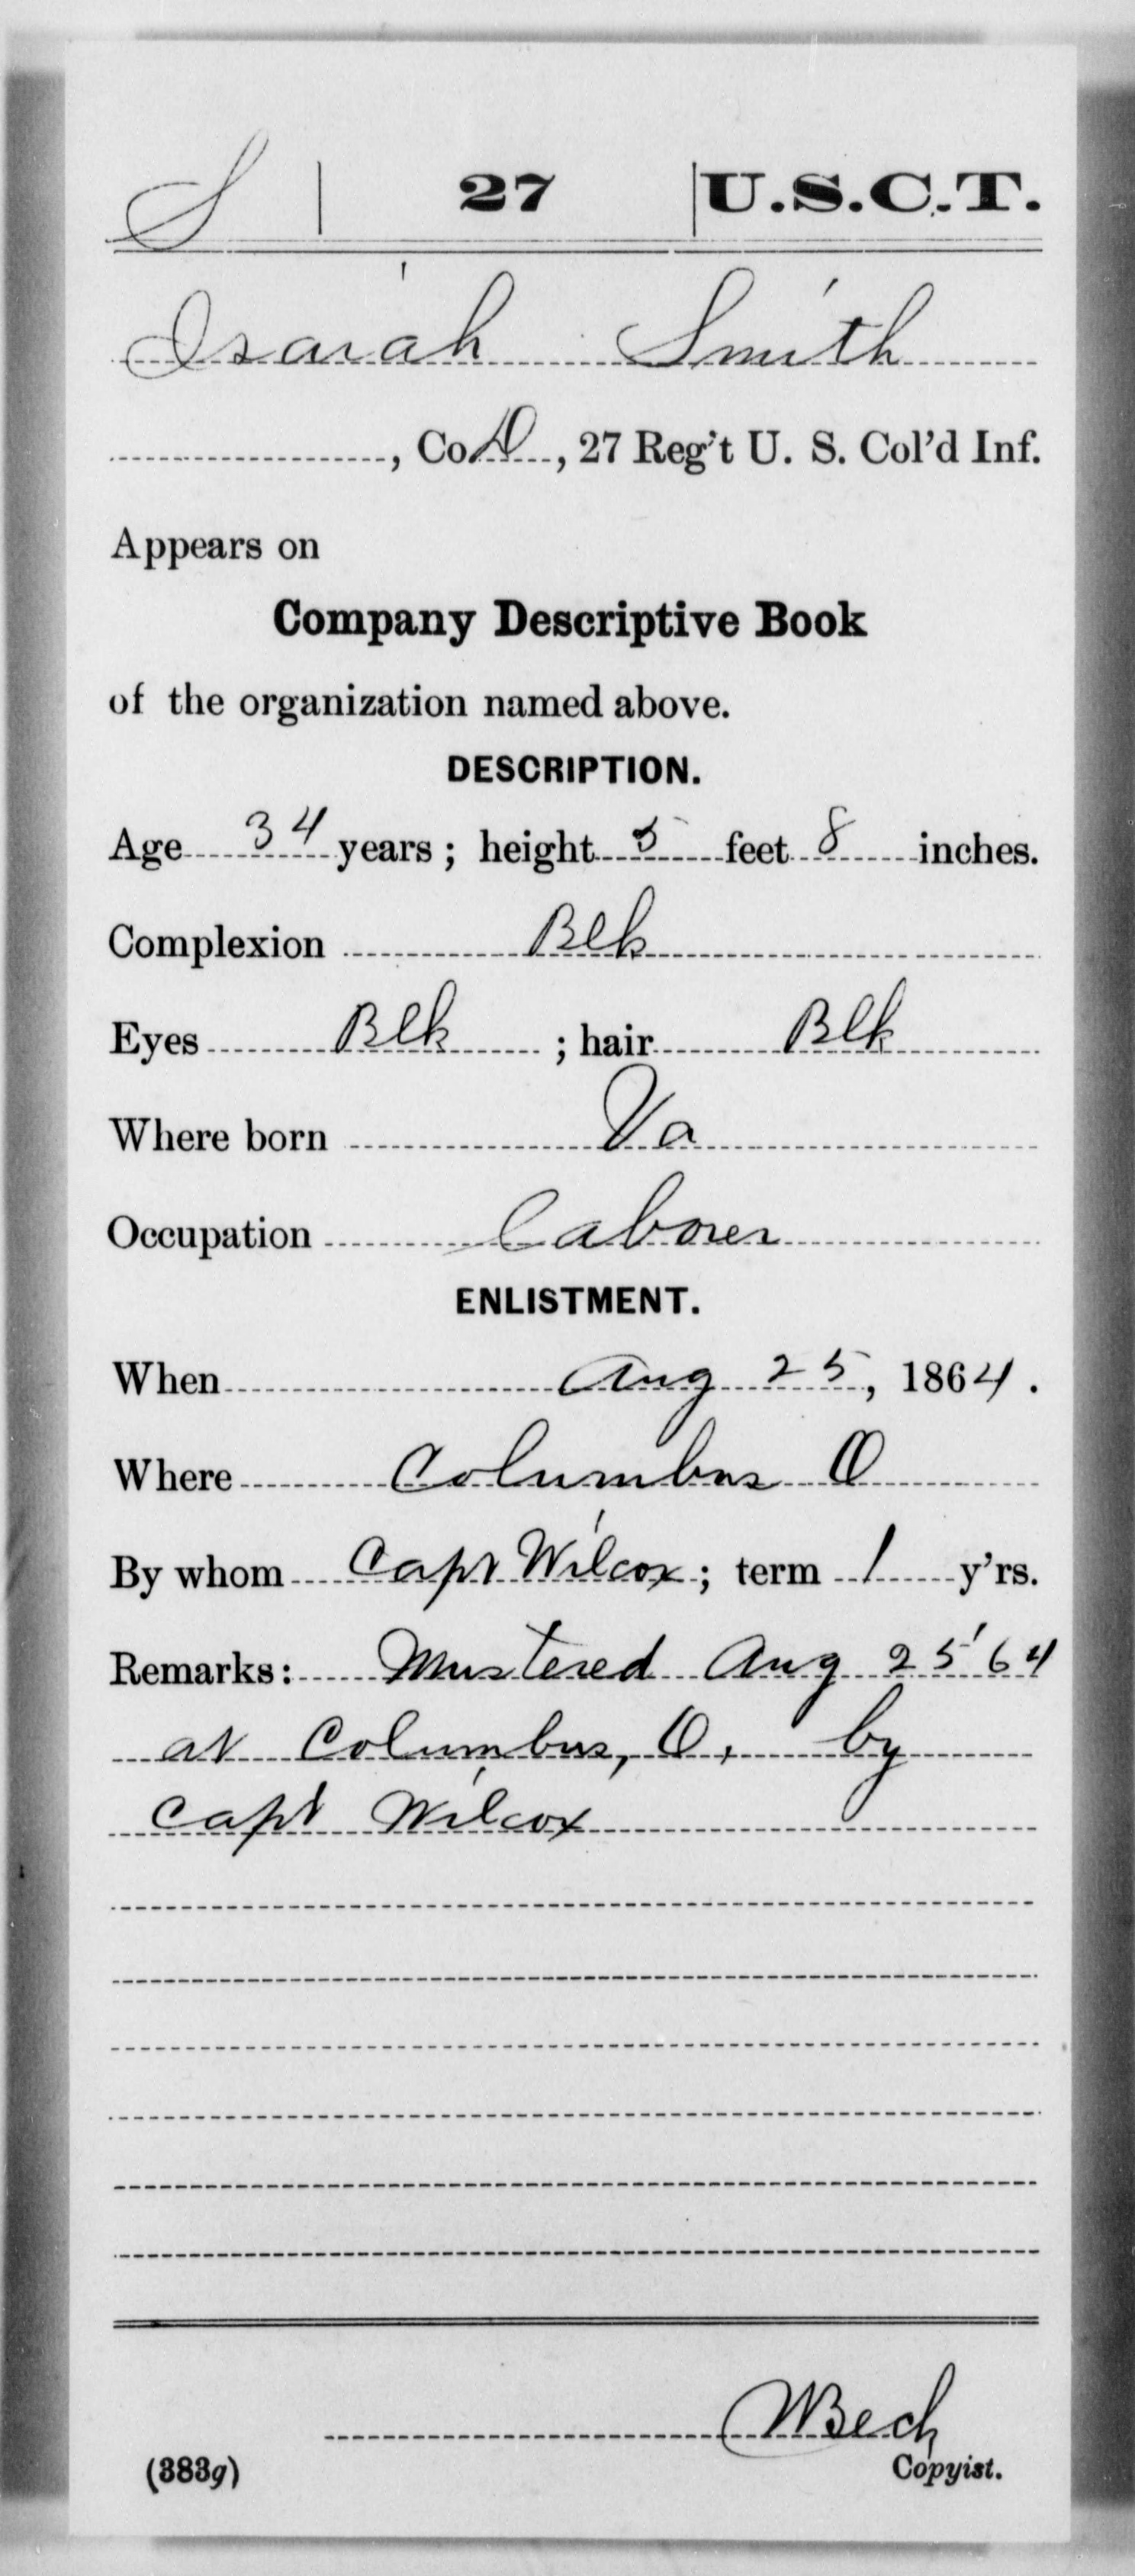 S | 27 | U.S.C.T.
Isaiah Smith
, Co. D, 27 Reg't U. S. Col'd Inf.
Appears on
Company Descriptive Book
of the organization named above.
DESCRIPTION.
Age 34 years; height 5 feet 8 inches.
Complexion Blk
Eyes Blk; hair Blk
Where born Va
Occupation Laborer
ENLISTMENT.
When Aug 25, 1864.
Where Columbus O
By whom Capt Wilcox; term 1 y'rs.
Remarks: Mustered Aug 25 '64
at Columbus, O, by
Capt Wilcox
Copyist.
(383g)